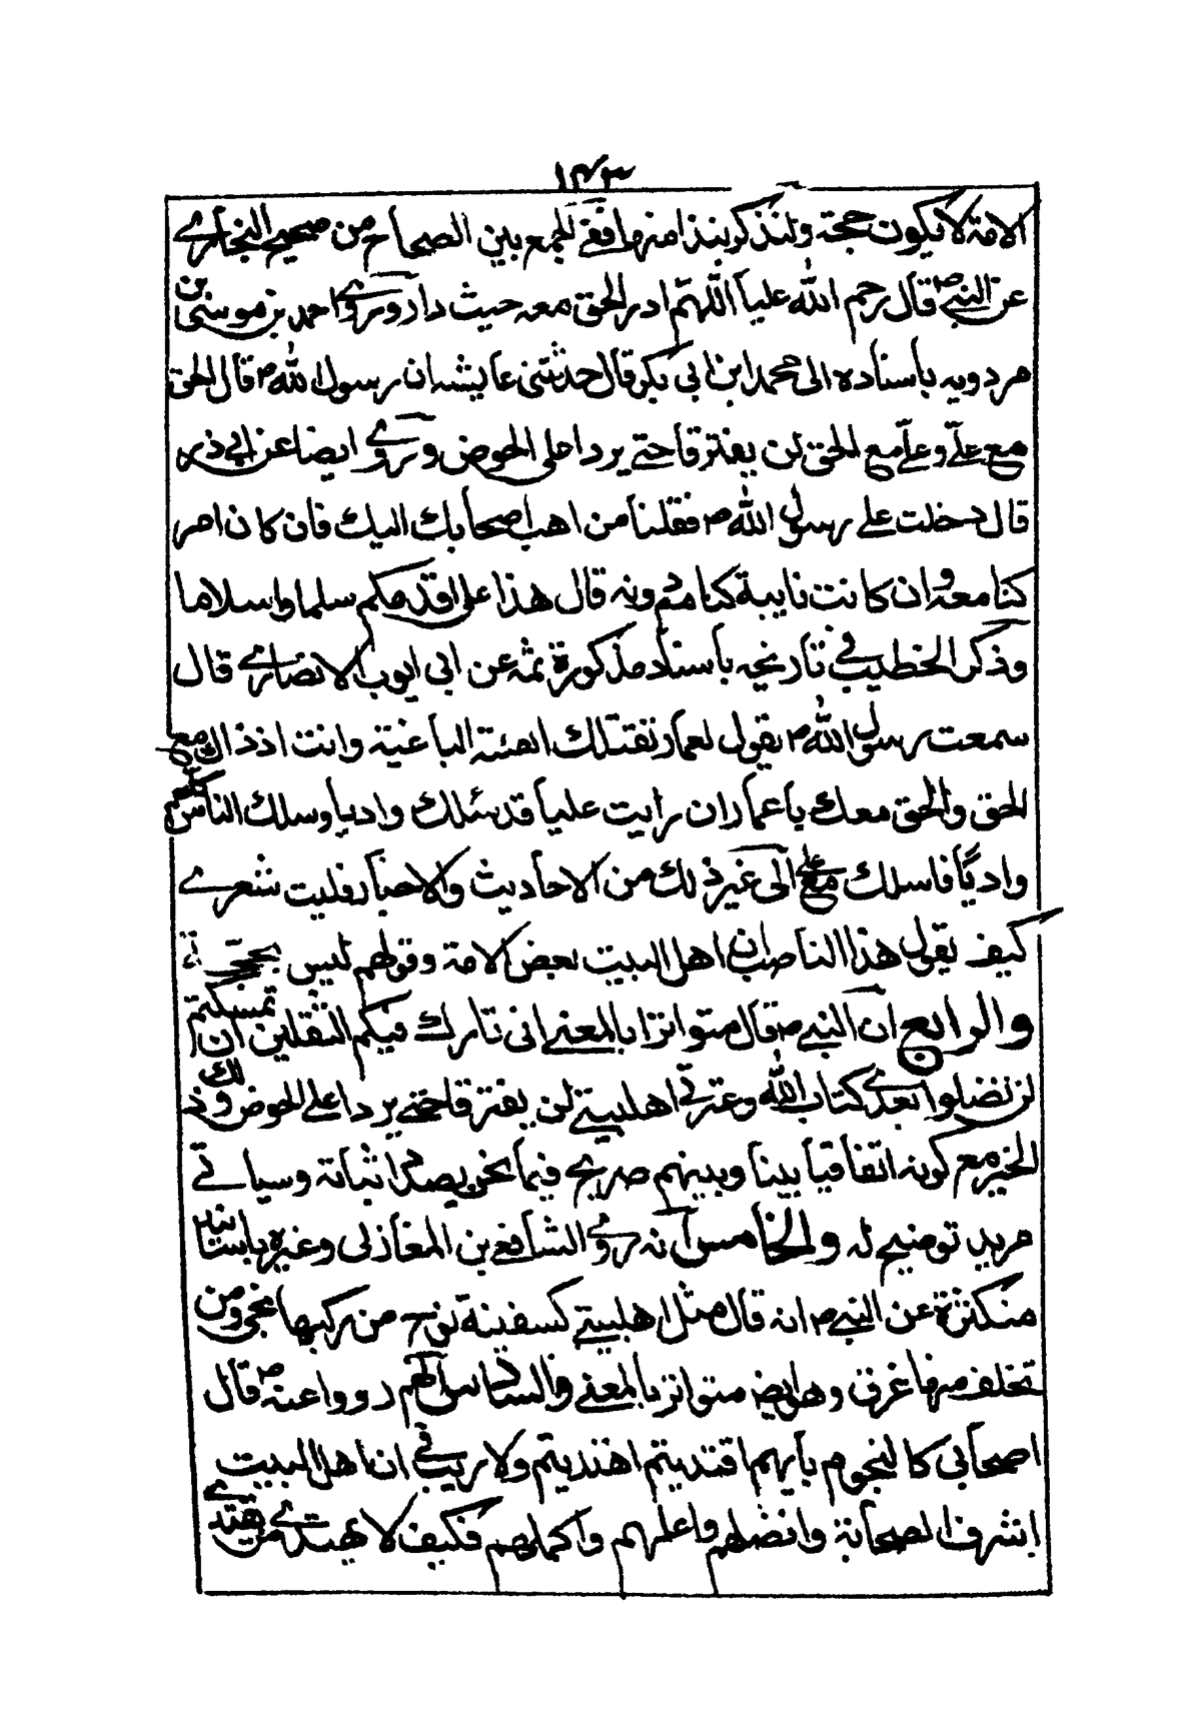 ١٤٣
الامة لا يكون حجة ولنذكر نبذا منها ففي الجمع بين الصحاح من صحيح البخاري
عن النبي ص قال رحم الله عليا اللهم ادر الحق معه حيث دار وروى احمد بن موسى بن
مردويه باسناده الى محمد ابن ابي بكر قال حدثتني عايشه ان رسول الله ص قال الحق
مع علي وعلي مع الحق لن يفترقا حتى يردا على الحوض وروى ايضا عن ابي ذر
قال دخلت على رسول الله ص فقلنا من احب اصحابك اليك فان كان امر
كنا معه وان كانت نايبة كنا من دونه قال هذا علي اقدمكم سلما واسلاما
وذكر الخطيب في تاريخه باسناد مذكورة ثمه عن ابي ايوب الانصاري قال
سمعت رسول الله ص يقول لعمار تقتلك الفئة الباغية وانت اذ ذاك مع
الحق والحق معك يا عمار ان رايت عليا قد سلك واديا وسلك الناس كلهم
واديا فاسلك مع علي الى غير ذلك من الاحاديث والاخبار فليت شعري
كيف يقول هذا الناصب ان اهل البيت بعض الامة وقولهم ليس بحجة
والرابع ان النبي ص قال متواترا بالمعنى اني تارك فيكم الثقلين ان تمسكتم
لن تضلوا بعدي كتاب الله وعترتي اهلبيتي لن يفترقا حتى يردا على الحوض وذلك
الخبر مع كونه اتفاقيا بيننا وبينهم صريح فيما نحن بصدد اثباته وسياتي
مزيد توضيح له والخامس انه روى الشافعي بن المغازلي وغيره باسانيد
متكثرة عن النبي ص انه قال مثل اهلبيتي كسفينة نوح من ركبها نجى ومن
تخلف عنها غرق وهو ايض متواتر بالمعنى والسادس انهم رووا عنه ص قال
اصحابي كالنجوم بايهم اقتديتم اهتديتم ولا ريب في ان اهل البيت
اشرف الصحابة وافضلهم واعلمهم واكملهم فكيف لا يهتدي من يقتدي